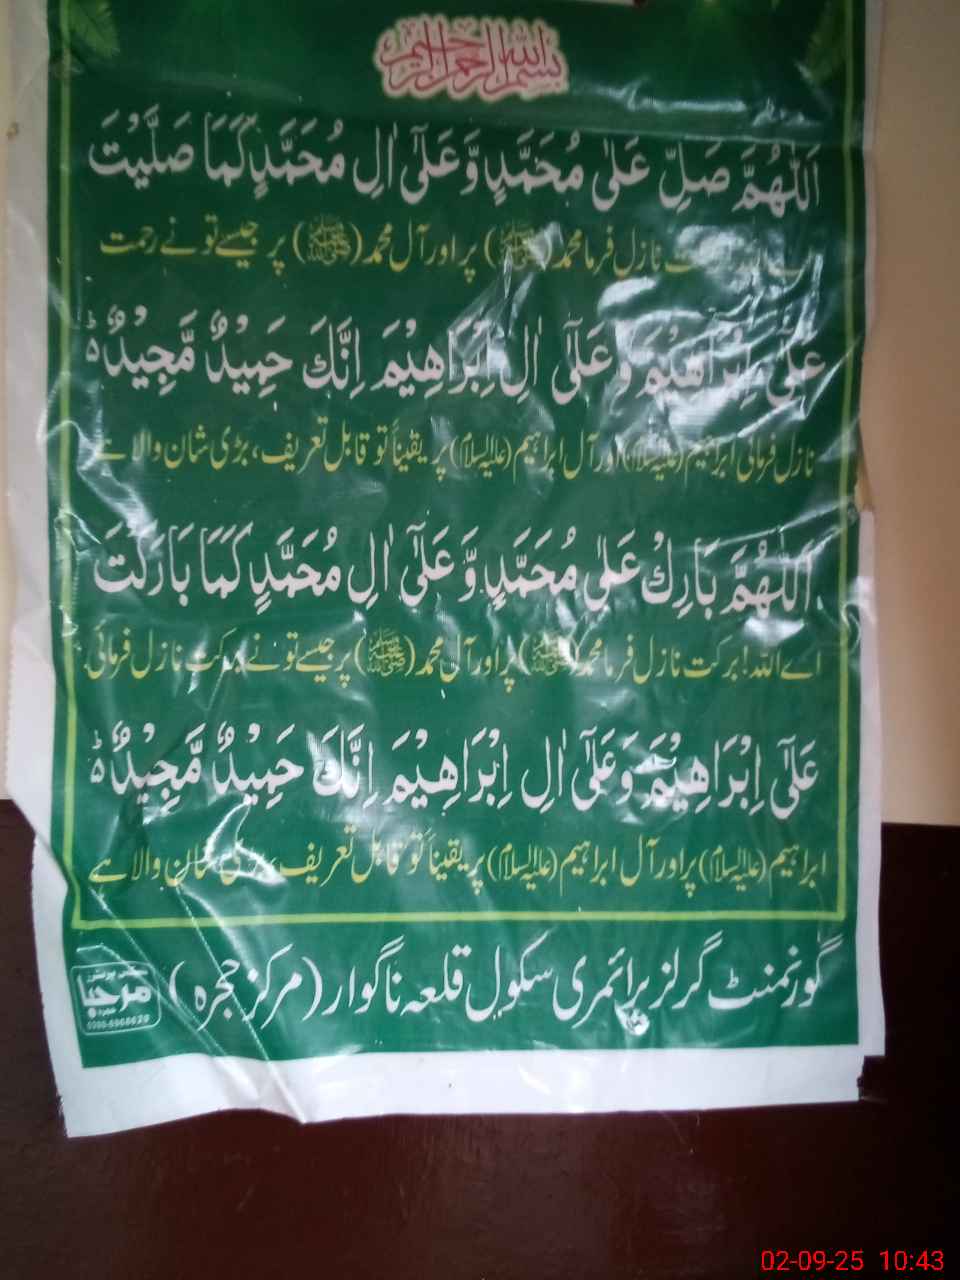 بسم الله الرحمن الرحيم
اَللّٰهُمَّ صَلِّ عَلٰى مُحَمَّدٍ وَّعَلٰٓى اٰلِ مُحَمَّدٍ كَمَا صَلَّيْتَ
نازل فرما محمد (ﷺ) پر اور آل محمد (ﷺ) پر جیسے تو نے رحمت
عَلٰٓى اِبْرَاهِيْمَ وَعَلٰٓى اٰلِ اِبْرَاهِيْمَ اِنَّكَ حَمِيْدٌ مَّجِيْدٌ ؕ
نازل فرمائی ابراہیم (علیہ السلام) اور آل ابراہیم (علیہ السلام) پر یقیناً تو قابل تعریف، بڑی شان والا ہے
اَللّٰهُمَّ بَارِكْ عَلٰى مُحَمَّدٍ وَّعَلٰٓى اٰلِ مُحَمَّدٍ كَمَا بَارَكْتَ
اے اللہ! برکت نازل فرما محمد (ﷺ) پر اور آل محمد (ﷺ) پر جیسے تو نے برکت نازل فرمائی
عَلٰٓى اِبْرَاهِيْمَ وَعَلٰٓى اٰلِ اِبْرَاهِيْمَ اِنَّكَ حَمِيْدٌ مَّجِيْدٌ ؕ
ابراہیم (علیہ السلام) پر اور آل ابراہیم (علیہ السلام) پر یقیناً تو قابل تعریف بڑی شان والا ہے
گورنمنٹ گرلز پرائمری سکول قلعہ ناگوار (مرکز حجرہ)
مرحبا
02-09-25 10:43